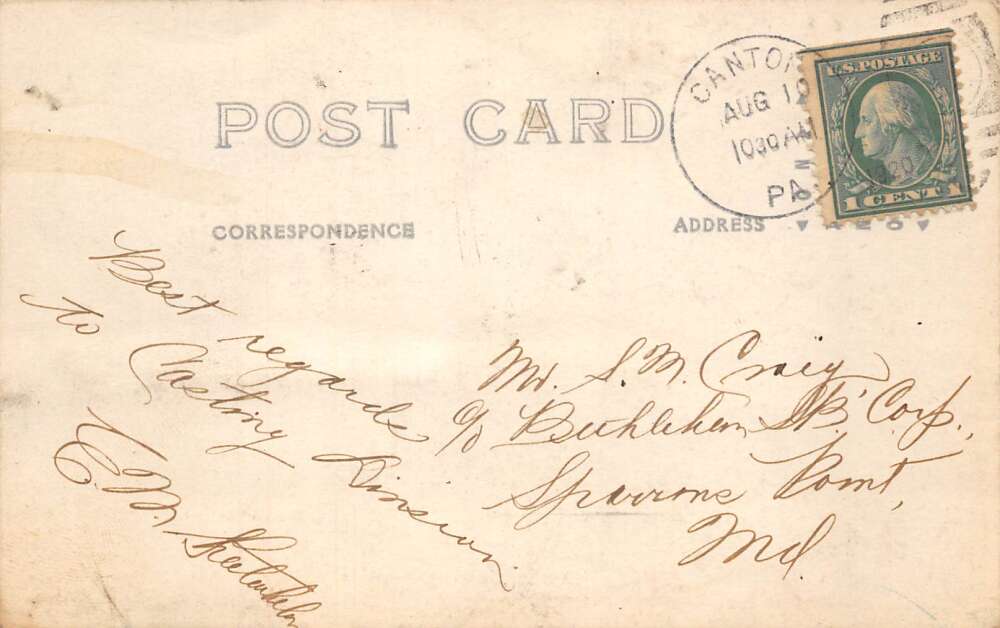 POST CARD
CANTON
AUG 19
1030 AM
PA.
1920
U.S. POSTAGE
1 CENT 1
CORRESPONDENCE
ADDRESS
Best regards
to Casting Division
E. M.
Mr. S. M. Craig
c/o Bethlehem SB' Corp.,
Sparrows Point,
Md